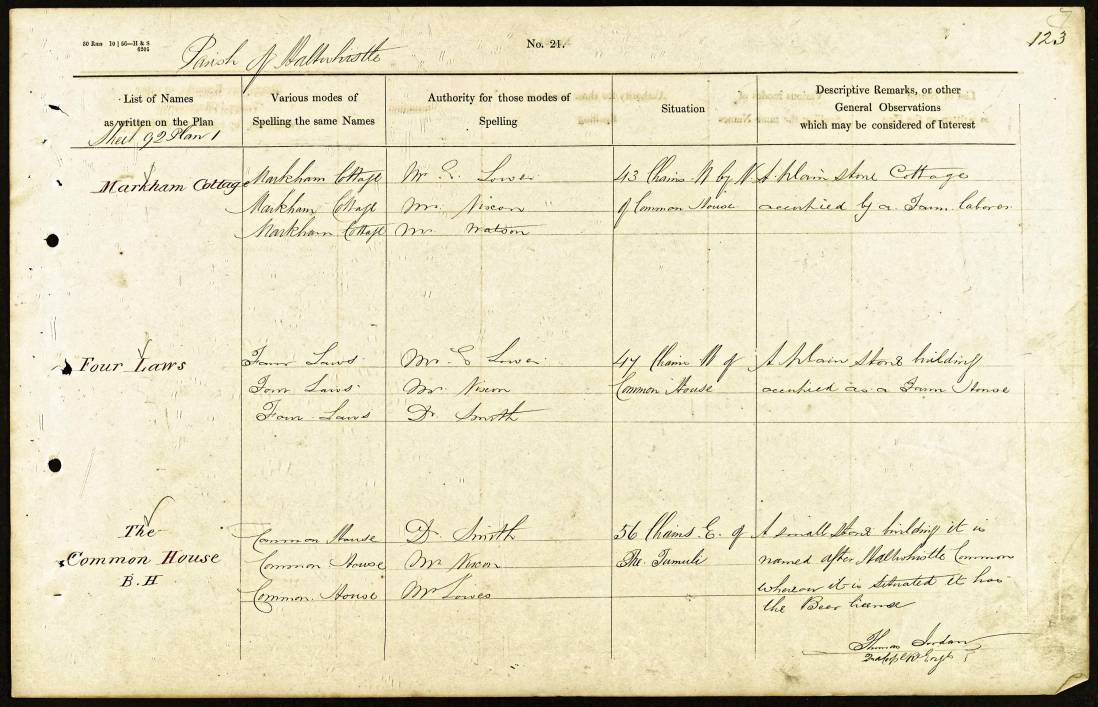 123
50 Rms 10 | 56—H & S
6205
No. 21.
Parish of Haltwhistle
List of Names
as written on the Plan
Various modes of
Spelling the same Names
Authority for those modes of
Spelling
Situation
Descriptive Remarks, or other
General Observations
which may be considered of Interest
Sheet 92 Plan 1
Markham Cottage
Markham Cottage
Markham Cottage
Markham Cottage
Mr Lowes
Mr Nixon
Mr Watson
43 Chains N by W
of Common House
A plain stone Cottage
occupied by a Farm laborer
Four Laws
Four Laws
Four Laws
Four Laws
Mr Lowes
Mr Nixon
Dr Smith
47 Chains W of
Common House
A plain stone building
occupied as a Farm House
The
Common House
B.H
Common House
Common House
Common House
Dr Smith
Mr Nixon
Mr Lowes
56 Chains E. of
The Tumuli
A small stone building it is
named after Haltwhistle Common
whereon it is situated it has
the Beer license
Thomas Jordan